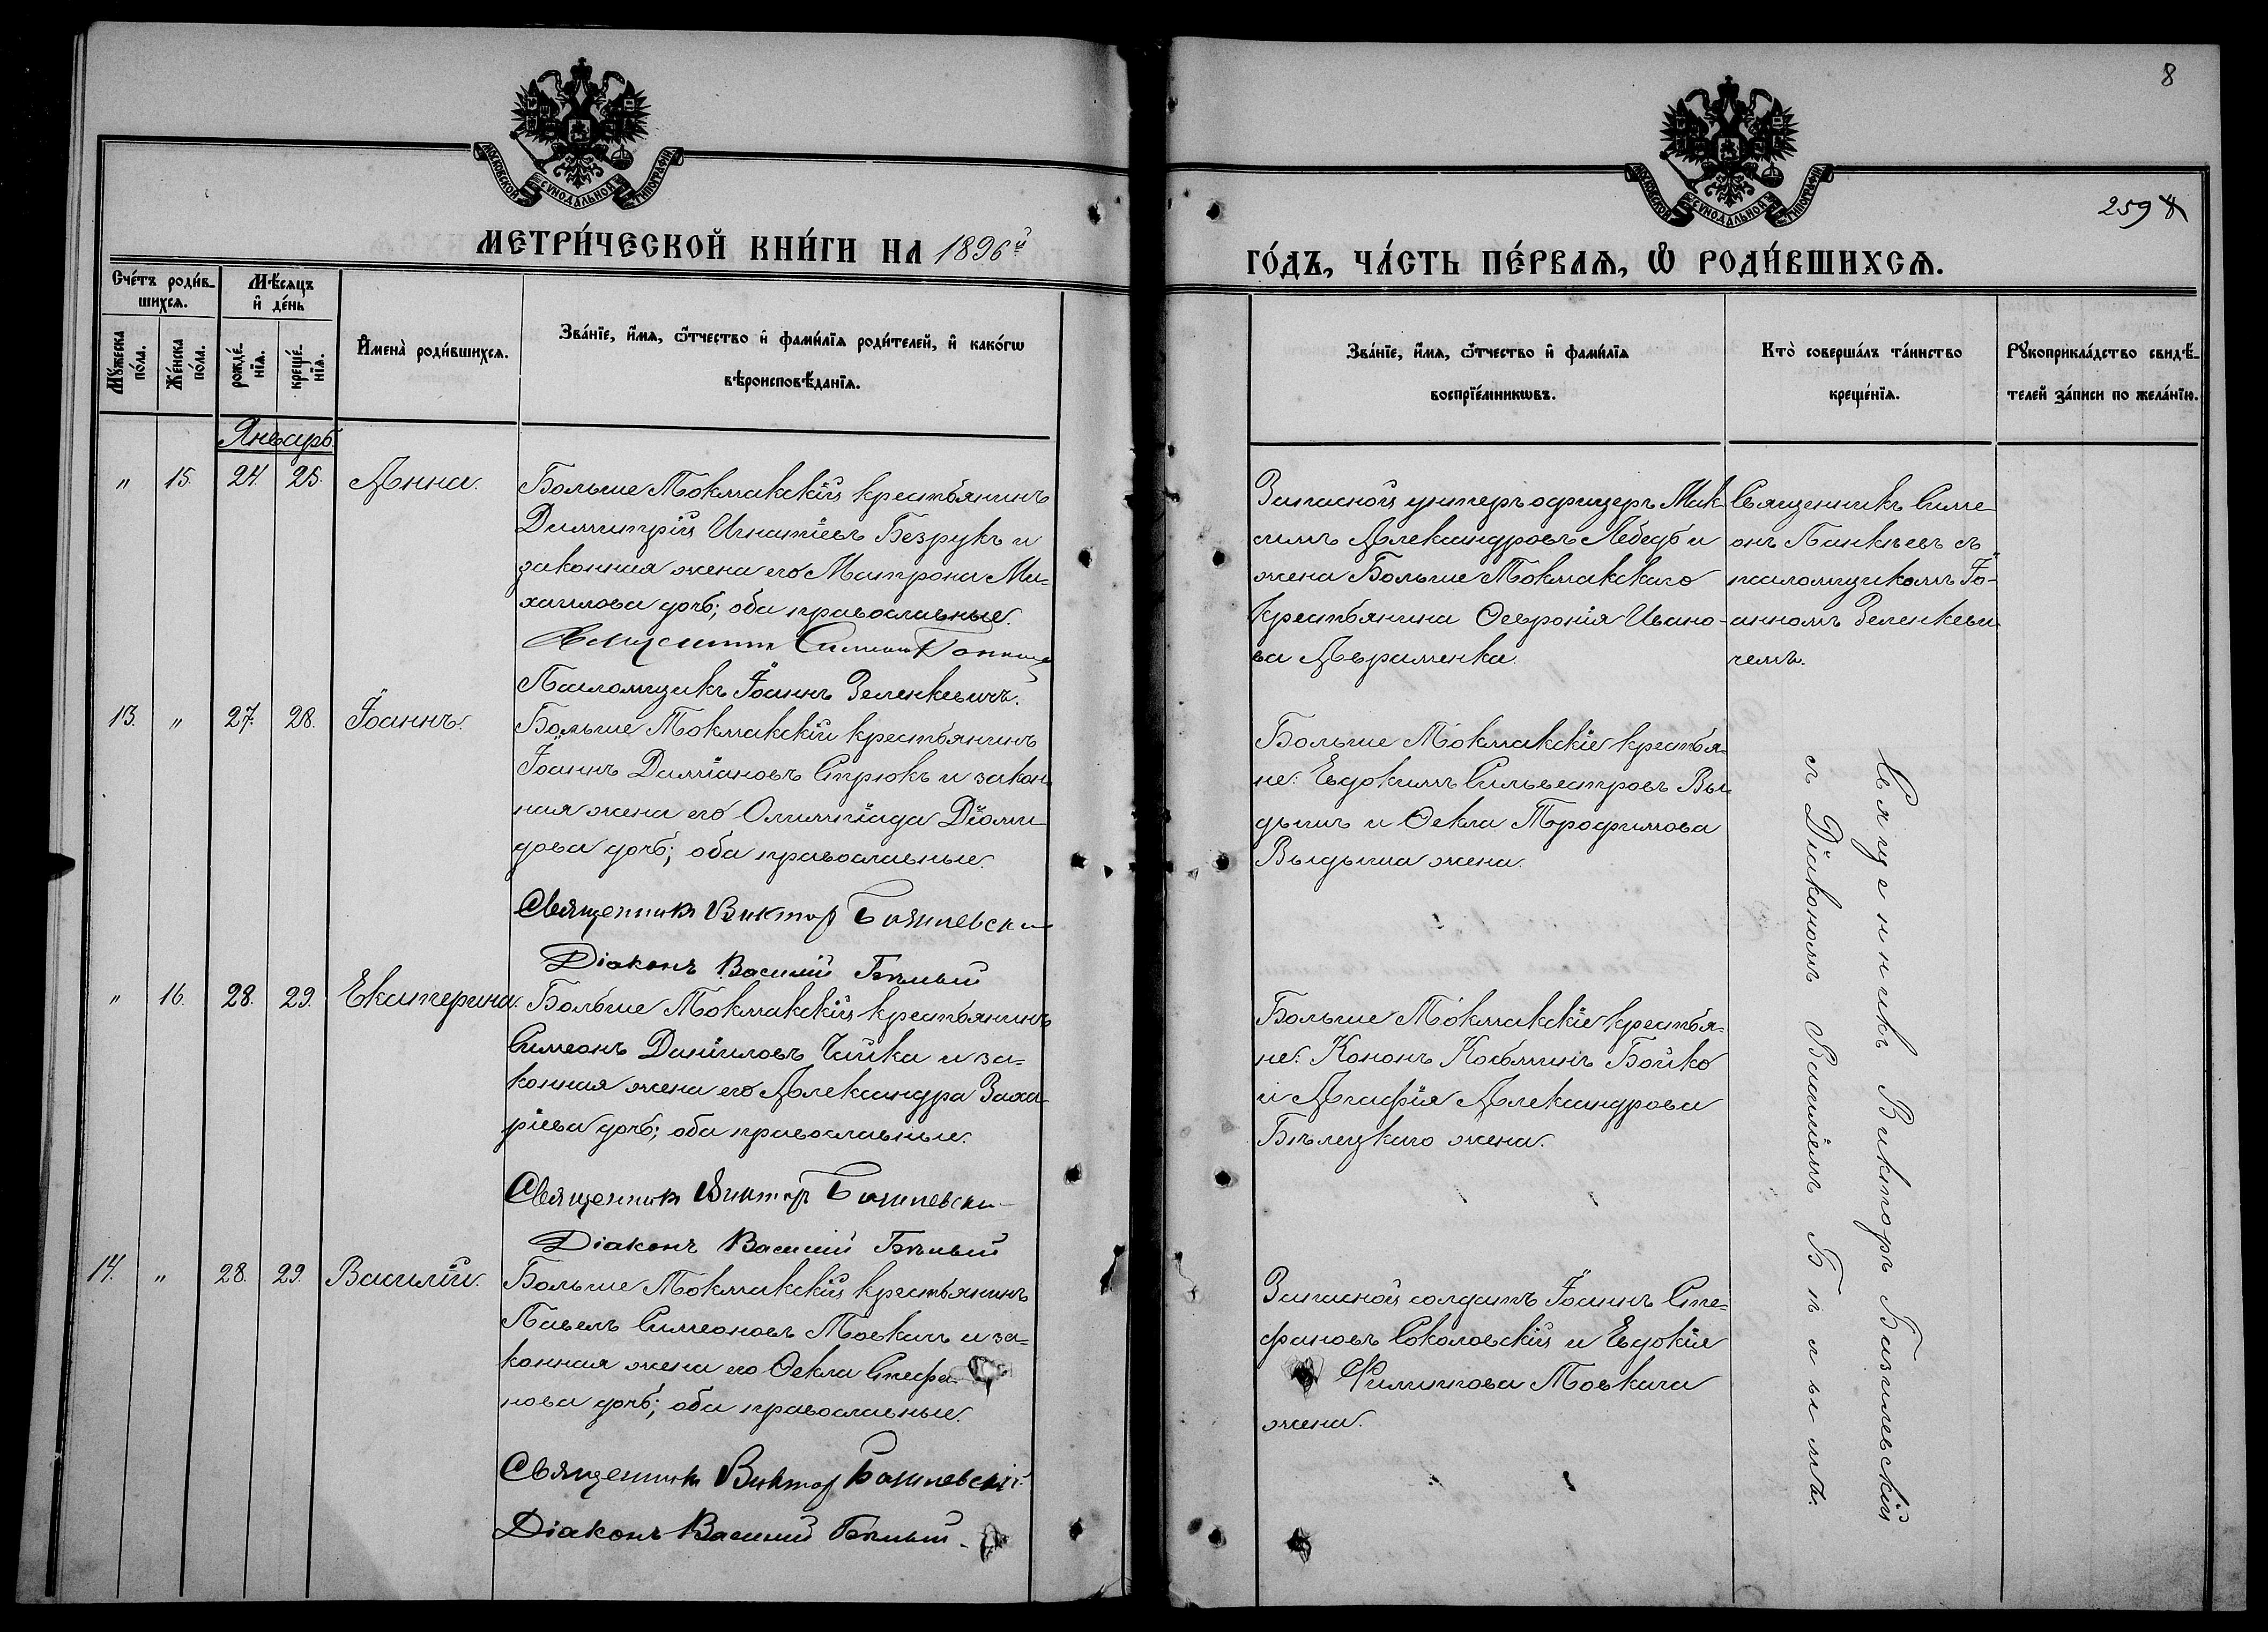 8
259
МОСКОВСКОЙ СѴНОДАЛЬНОЙ ТИПОГРАФІИ
МОСКОВСКОЙ СѴНОДАЛЬНОЙ ТИПОГРАФІИ
МЕТРИ́ЧЕСКОЙ КНИ́ГИ НА 1896й
ГО́ДЪ, ЧА́СТЬ ПЕ́РВАѦ, Ѡ҆ РОДИ́ВШИХСѦ.
Сче́тъ роди́в-
шихсѧ.
Мѣ́сѧцъ
и҆ де́нь
Мꙋ́жеска
по́ла.
Же́нска
по́ла.
рожде́-
нїѧ.
креще́-
нїѧ.
И҆мена̀ роди́вшихсѧ.
Зва́нїе, и҆́мѧ, ѻ҆́тчество и҆ фами́лїѧ роди́телей, и҆ како́гѡ
вѣроисповѣ́данїѧ.
Зва́нїе, и҆́мѧ, ѻ҆́тчество и҆ фами́лїѧ
воспрїе́мникѡвъ.
Кто̀ соверша́лъ та́инство
креще́нїѧ.
Рꙋкоприкла́дство свидѣ́-
телей за́писи по жела́нїю.
Январь.
" 15. 24. 25. Анна.
Больше Токмакскій крестьянинъ
Димитрій Игнатіевъ Безрукъ и
законная жена его Матрона Ми-
хаилова дочь; оба православные.
Псаломщикъ Іоаннъ Зеленкевичъ.
Запасной унтеръ офицеръ Мак-
симъ Александровъ Лебедь и
жена Больше Токмакскаго
крестьянина Ѳевронія Ивано-
ва Авраменка.
Священникъ Симе-
онъ Панкѣевъ съ
псаломщикомъ Іо-
анномъ Зеленкеви-
чемъ.
13. " 27. 28. Іоаннъ.
Больше Токмакскій крестьянинъ
Іоаннъ Даміановъ Стрюкъ и закон-
ная жена его Олимпіада Діоми-
дова дочь; оба православные.
Священникъ Викторъ Базилевскі
Діаконъ Василій Бѣлый
Больше Токмакскіе крестья-
не: Евдокимъ Сильвестровъ Вы-
дышъ и Ѳекла Трофимова
Выдыша жена.
Священникъ Викторъ Базилевскій
съ Діакономъ Василіемъ Бѣлымъ.
" 16. 28. 29. Екатерина.
Больше Токмакскій крестьянинъ
Симеонъ Даніиловъ Чайка и за-
конная жена его Александра Заха-
ріева дочь; оба православные.
Священникъ Викторъ Базилевскі
Діаконъ Василій Бѣлый
Больше Токмакскіе крестья-
не: Кононъ Косьминъ Бойко
и Агафія Александрова
Бѣлецкаго жена.
14. " 28. 29. Василій.
Больше Токмакскій крестьянинъ
Павелъ Симеоновъ Товкачъ и за-
конная жена его Ѳекла Стефа-
нова дочь; оба православные.
Священникъ Викторъ Базилевскій
Діаконъ Василій Бѣлый
Запасной солдатъ Іоаннъ Сте-
фановъ Соколовскій и Евдокія
Филиппова Товкача
жена.